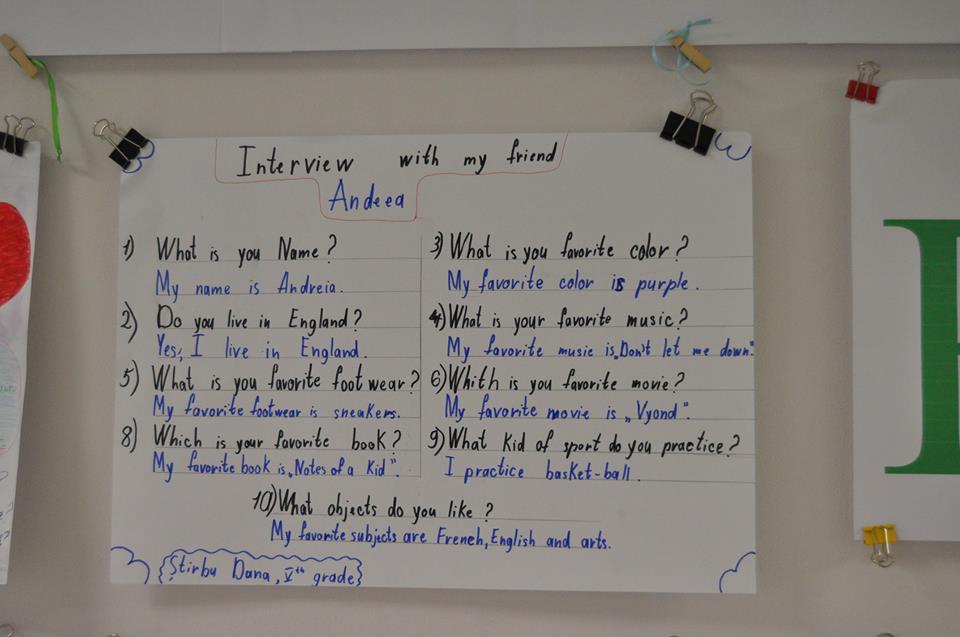 Interview with my friend
Andeea
1) What is you Name?
My name is Andreia.
2) Do you live in England?
Yes, I live in England.
5) What is you favorite footwear?
My favorite footwear is sneakers.
8) Which is your favorite book?
My favorite book is „Notes of a Kid".
3) What is you favorite color?
My favorite color is purple.
4) What is your favorite music?
My favorite music is „Don't let me down".
6) Whith is you favorite movie?
My favorite movie is „Vyond".
9) What Kid of sport do you practice?
I practice basket-ball.
10) What objects do you like?
My favorite subjects are French, English and arts.
Știrbu Dana, Vth grade